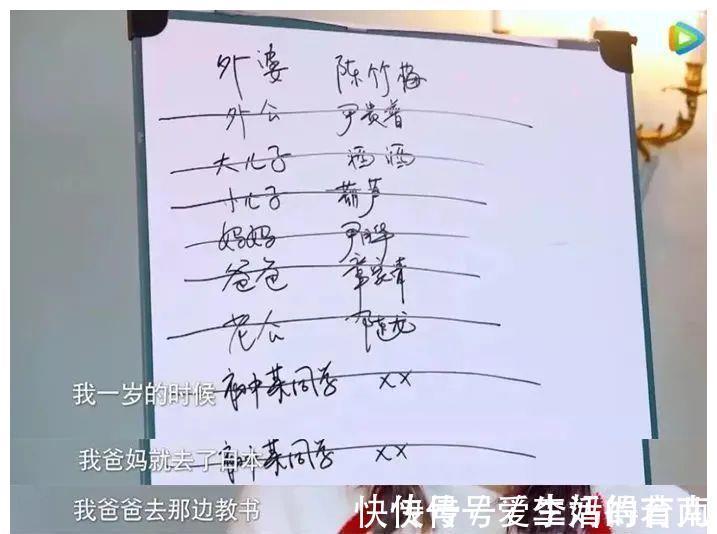 外婆 陈竹梅
外公 尹贵春
大儿子 福福
小儿子 葫芦
妈妈 尹晔
爸爸 章
老公 陈龙
高中某同学 xx
我一岁的时候
高中某同学 xx
我爸妈就去了日本
我爸爸去那边教书